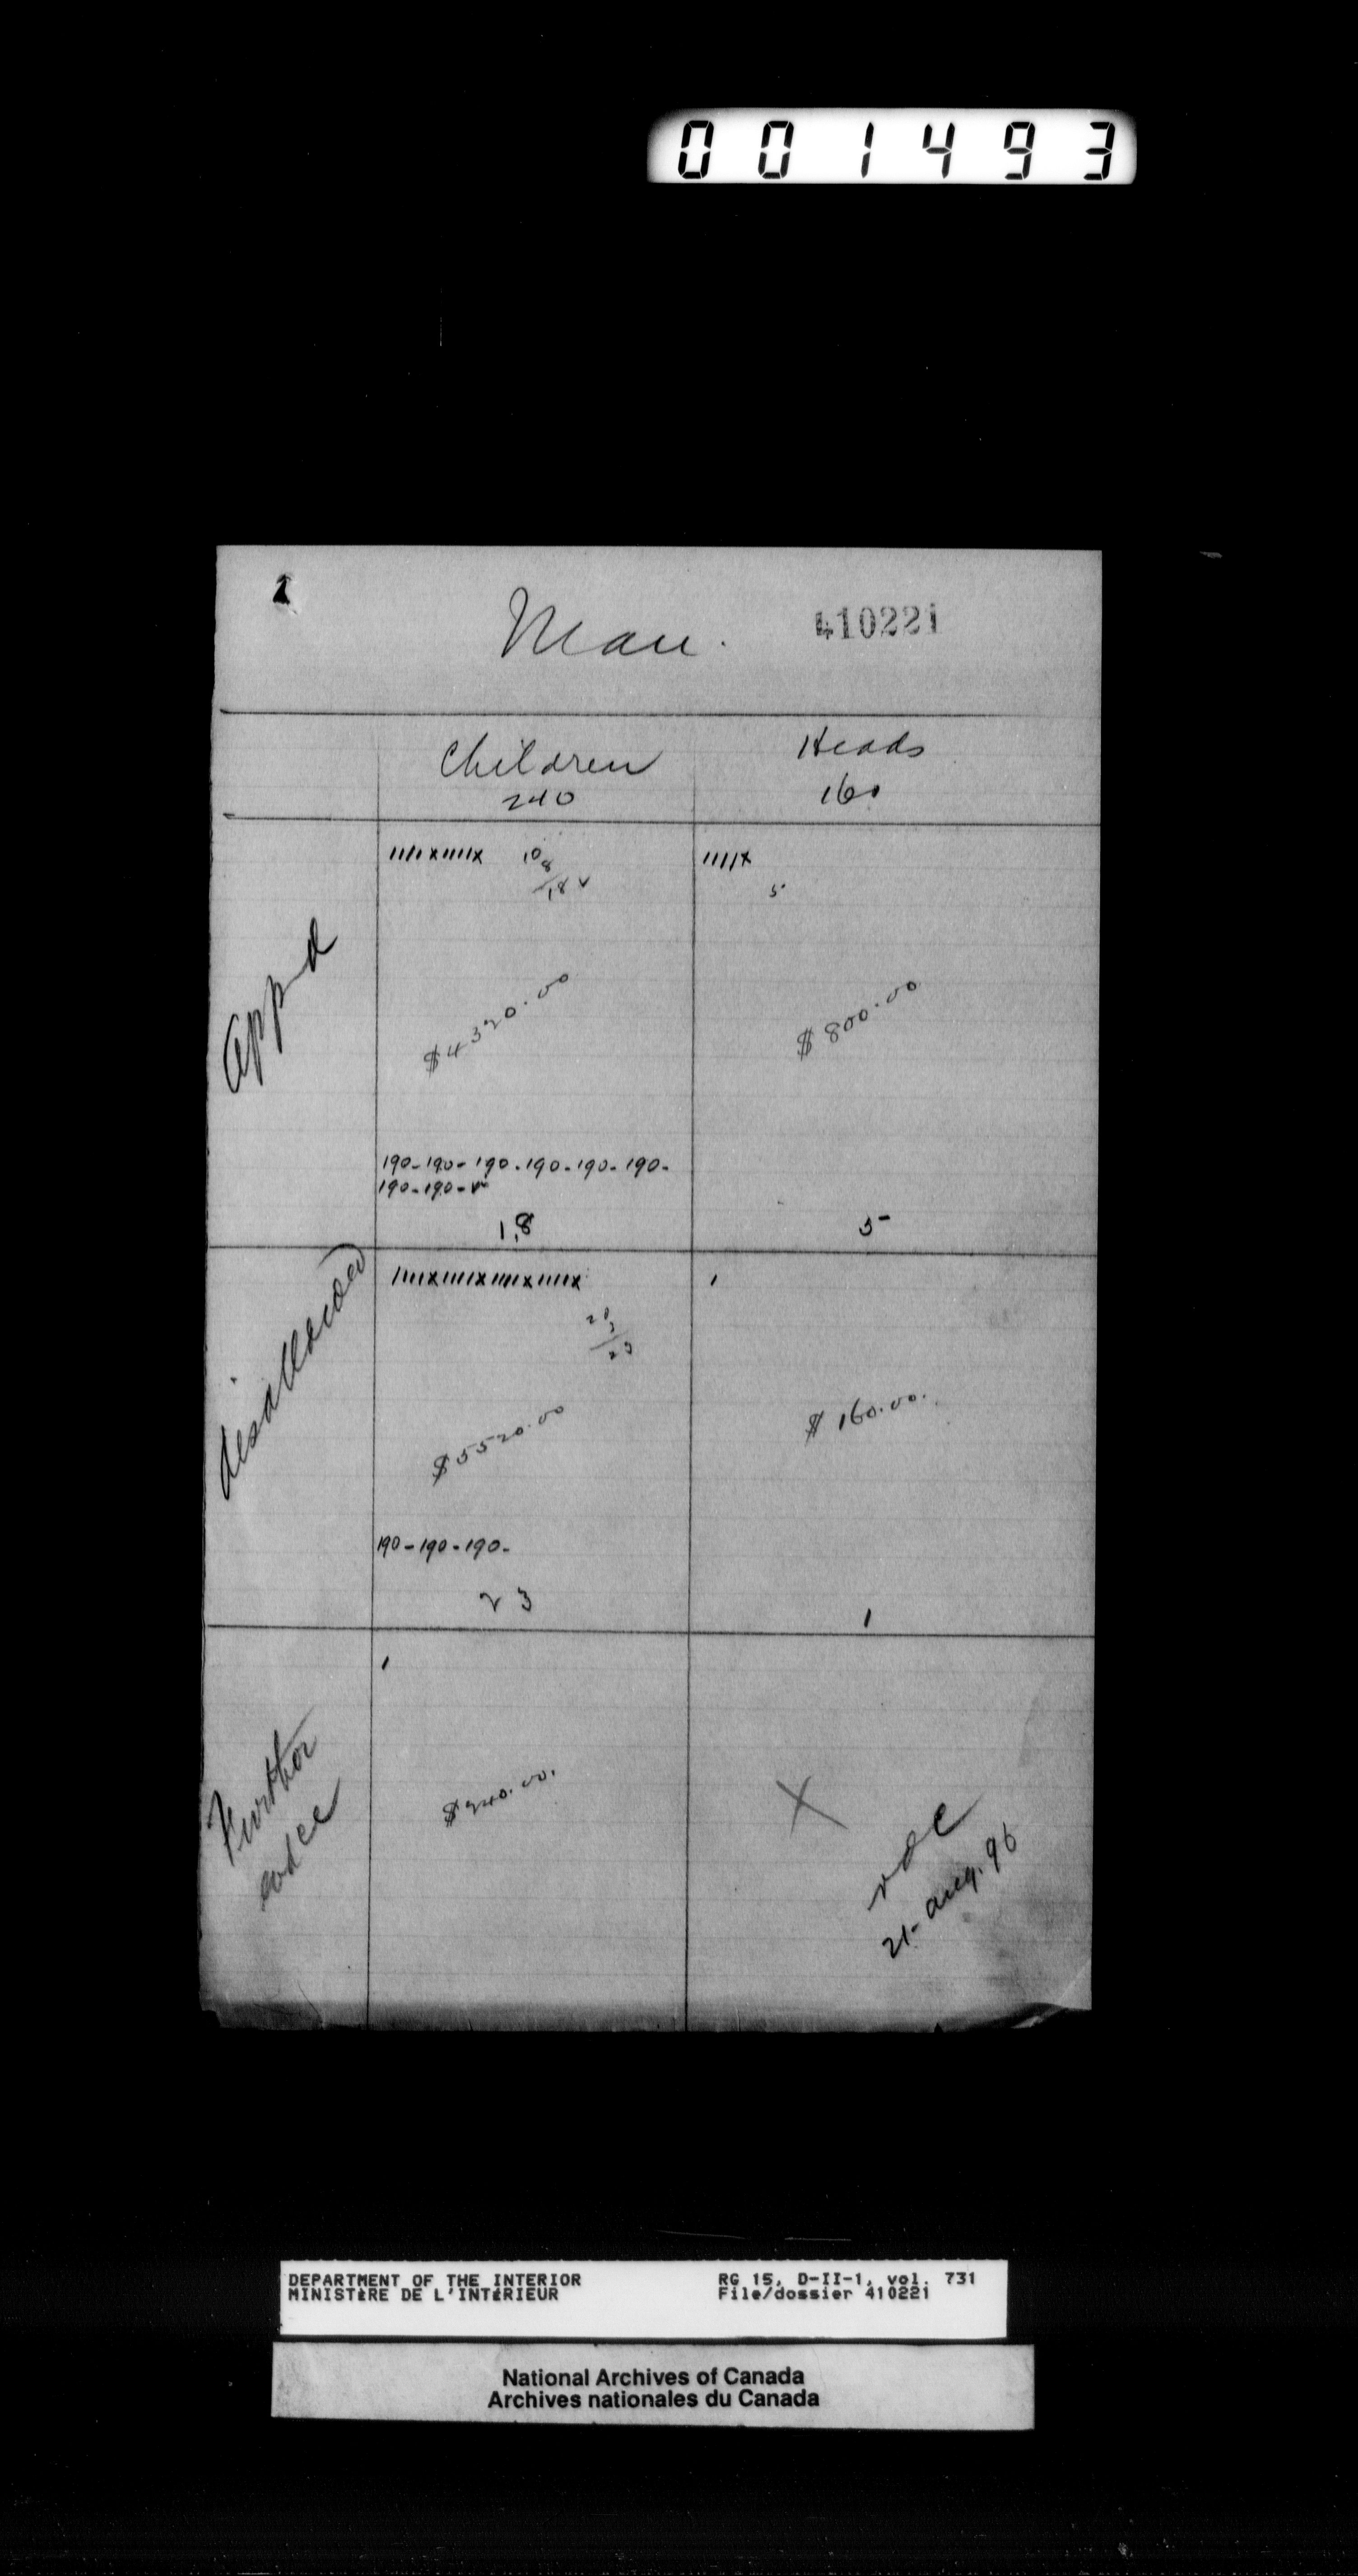 001493
Man.
410221
Children
240
Heads
160
App-d
10
8
18 ✓
5
$4320.00
$800.00
190-190-190-190-190-190-
190-190-✓
18
5
disallowed
20
3
23
$5520.00
$160.00.
190-190-190-
23
1
Further
evdce
$240.00.
X
21-Aug. 96
DEPARTMENT OF THE INTERIOR
MINISTÈRE DE L'INTÉRIEUR
RG 15, D-II-1, vol. 731
File/dossier 410221
National Archives of Canada
Archives nationales du Canada